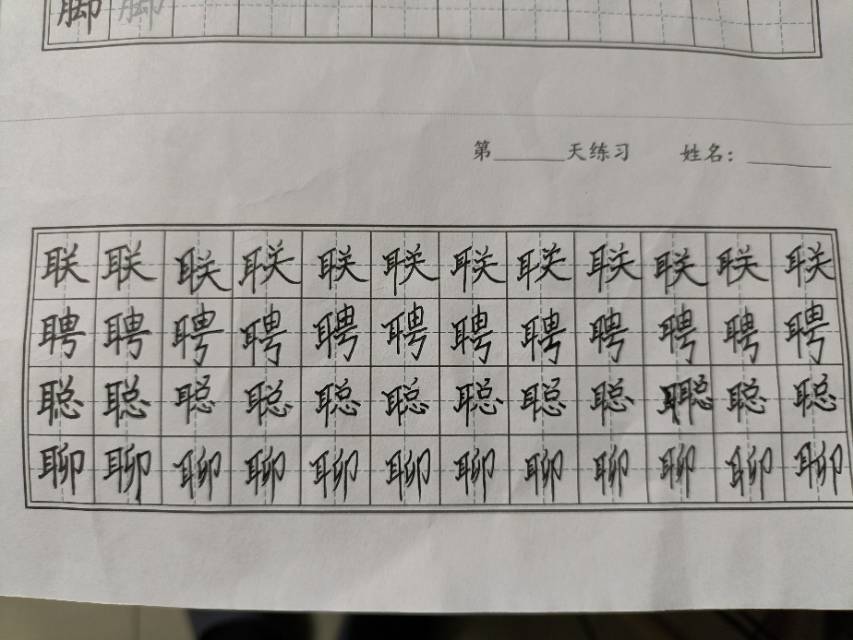 脚脚
第______天练习 姓名：______
联联联联联联联联联联联联
聘聘聘聘聘聘聘聘聘聘聘聘
聪聪聪聪聪聪聪聪聪聪聪聪
聊聊聊聊聊聊聊聊聊聊聊聊